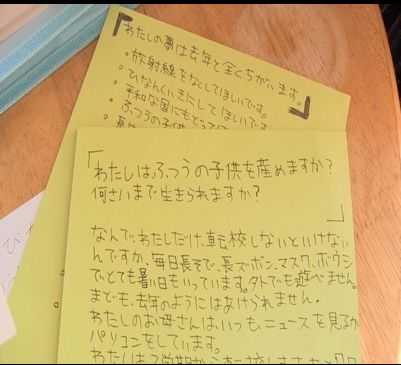 「わたしの夢は去年と全くちがいます。
・放射線をなくしてほしいです。
・ひなんくいきにしてほしいです。
・平和な国にもどって
・ふつうの子供
」
「わたしはふつうの子供を産めますか？
何さいまで生きられますか？
」
なんで、わたしだけ、転校しないといけない
んですか。毎日長そで、長ズボン、マスク、ボウシ
でとても暑い日もいっています。外でも遊べません。
まども、去年のようにはあけられません。
わたしのお母さんは、いつもニュースを見るか
パソコンをしています。
わたしは2学期から